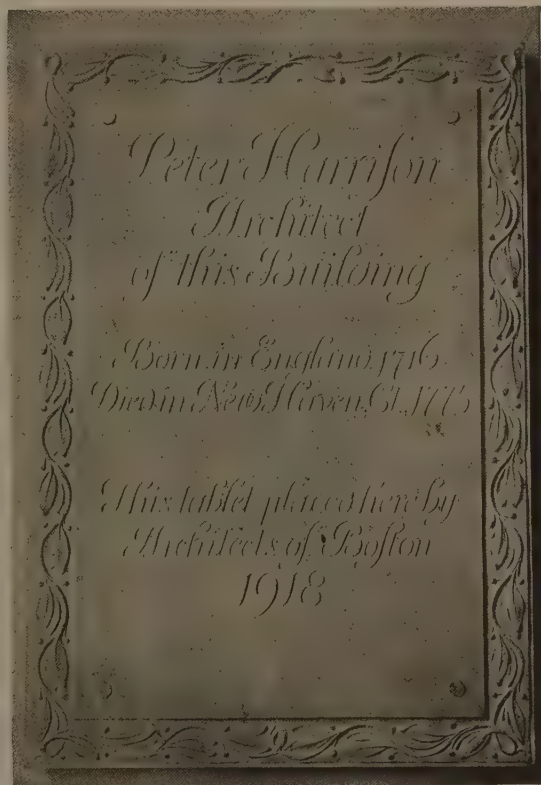 Peter Harriſon
Architect
of this Building
Born in England, 1716
Died in New Haven, Ct., 1775
This tablet placed here by
Architects of Boſton
1918